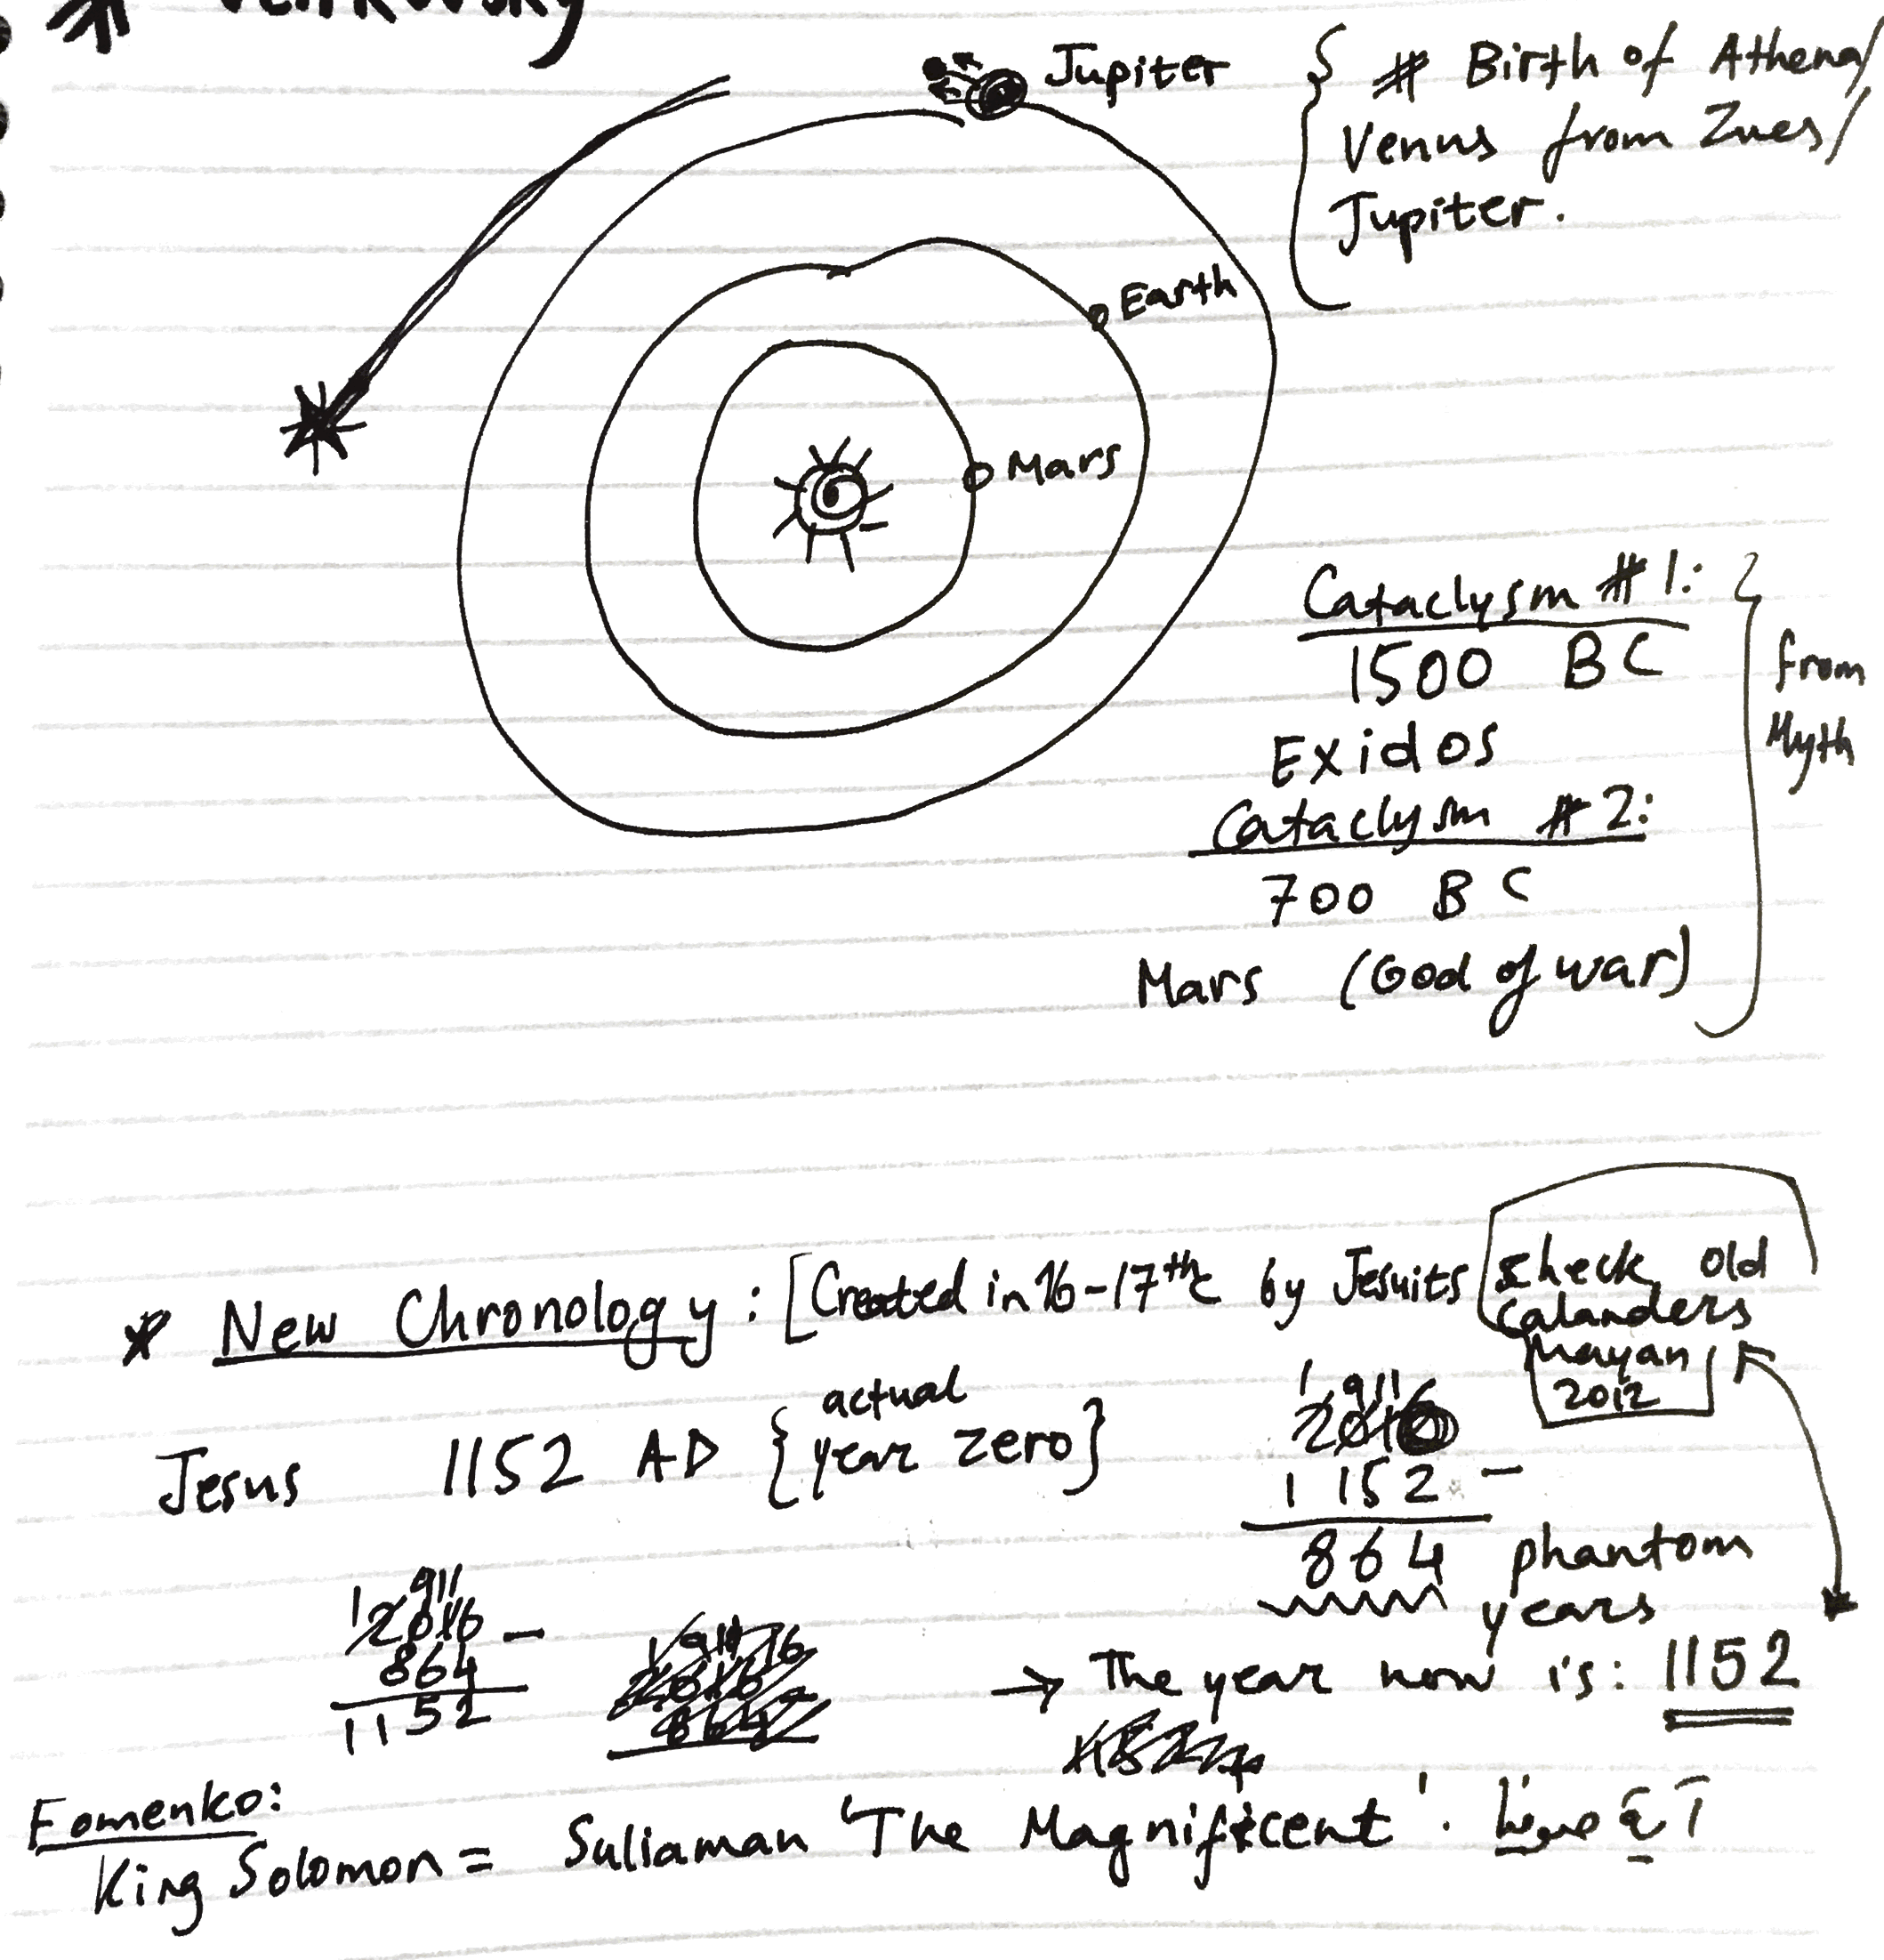 Velikovsky
Jupiter
# Birth of Athena/
Venus from Zues/
Jupiter.
Earth
Mars
Cataclysm #1:
1500 BC
Exidos
Cataclysm #2:
700 BC
Mars (God of war)
from
Myth
* New Chronology: [Created in 16-17th c by Jesuits
check old
calanders
mayan
2012
Jesus 1152 AD {actual
year zero}
1 9 11
2016
1152 -
864 phantom
years
1 9 11
2016 -
864
1152
→ The year now is: 1152
Fomenko:
King Solomon = Suliaman 'The Magnificent'.